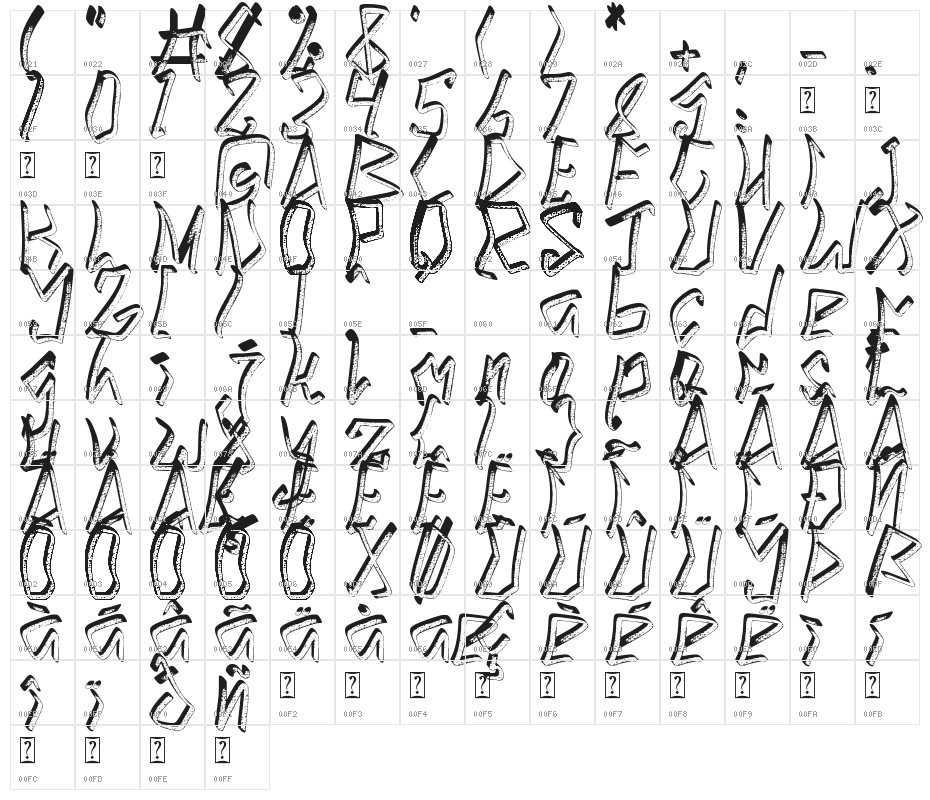 ! " # $ % & ' ( ) * + , - .
0021 0022 0023 0024 0025 0026 0027 0028 0029 002A 002B 002C 002D 002E
/ 0 1 2 3 4 5 6 7 8 9 : ? ?
002F 0030 0031 0032 0033 0034 0035 0036 0037 0038 0039 003A 003B 003C
? ? ? @ A B C D E F G H I J
003D 003E 003F 0040 0041 0042 0043 0044 0045 0046 0047 0048 0049 004A
K L M N O P Q R S T U V W X
004B 004C 004D 004E 004F 0050 0051 0052 0053 0054 0055 0056 0057 0058
Y Z [ \ ] ^ _ ` a b c d e f
0059 005A 005B 005C 005D 005E 005F 0060 0061 0062 0063 0064 0065 0066
g h i j k l m n o p q r s t
0067 0068 0069 006A 006B 006C 006D 006E 006F 0070 0071 0072 0073 0074
u v w x y z { | } ~ À Á Â Ã
Ä Å Æ Ç È É Ê Ë Ì Í Î Ï Ð Ñ
Ò Ó Ô Õ Ö × Ø Ù Ú Û Ü Ý Þ ß
00D2 00D3 00D4 00D5 00D6 00D7 00D8 00D9 00DA 00DB 00DC 00DD 00DE 00DF
à á â ã ä å æ ç è é ê ë ì í
00E0 00E1 00E2 00E3 00E4 00E5 00E6 00E7 00E8 00E9 00EA 00EB 00EC 00ED
î ï ð ñ ? ? ? ? ? ? ? ? ? ?
00EE 00EF 00F0 00F1 00F2 00F3 00F4 00F5 00F6 00F7 00F8 00F9 00FA 00FB
? ? ? ?
00FC 00FD 00FE 00FF